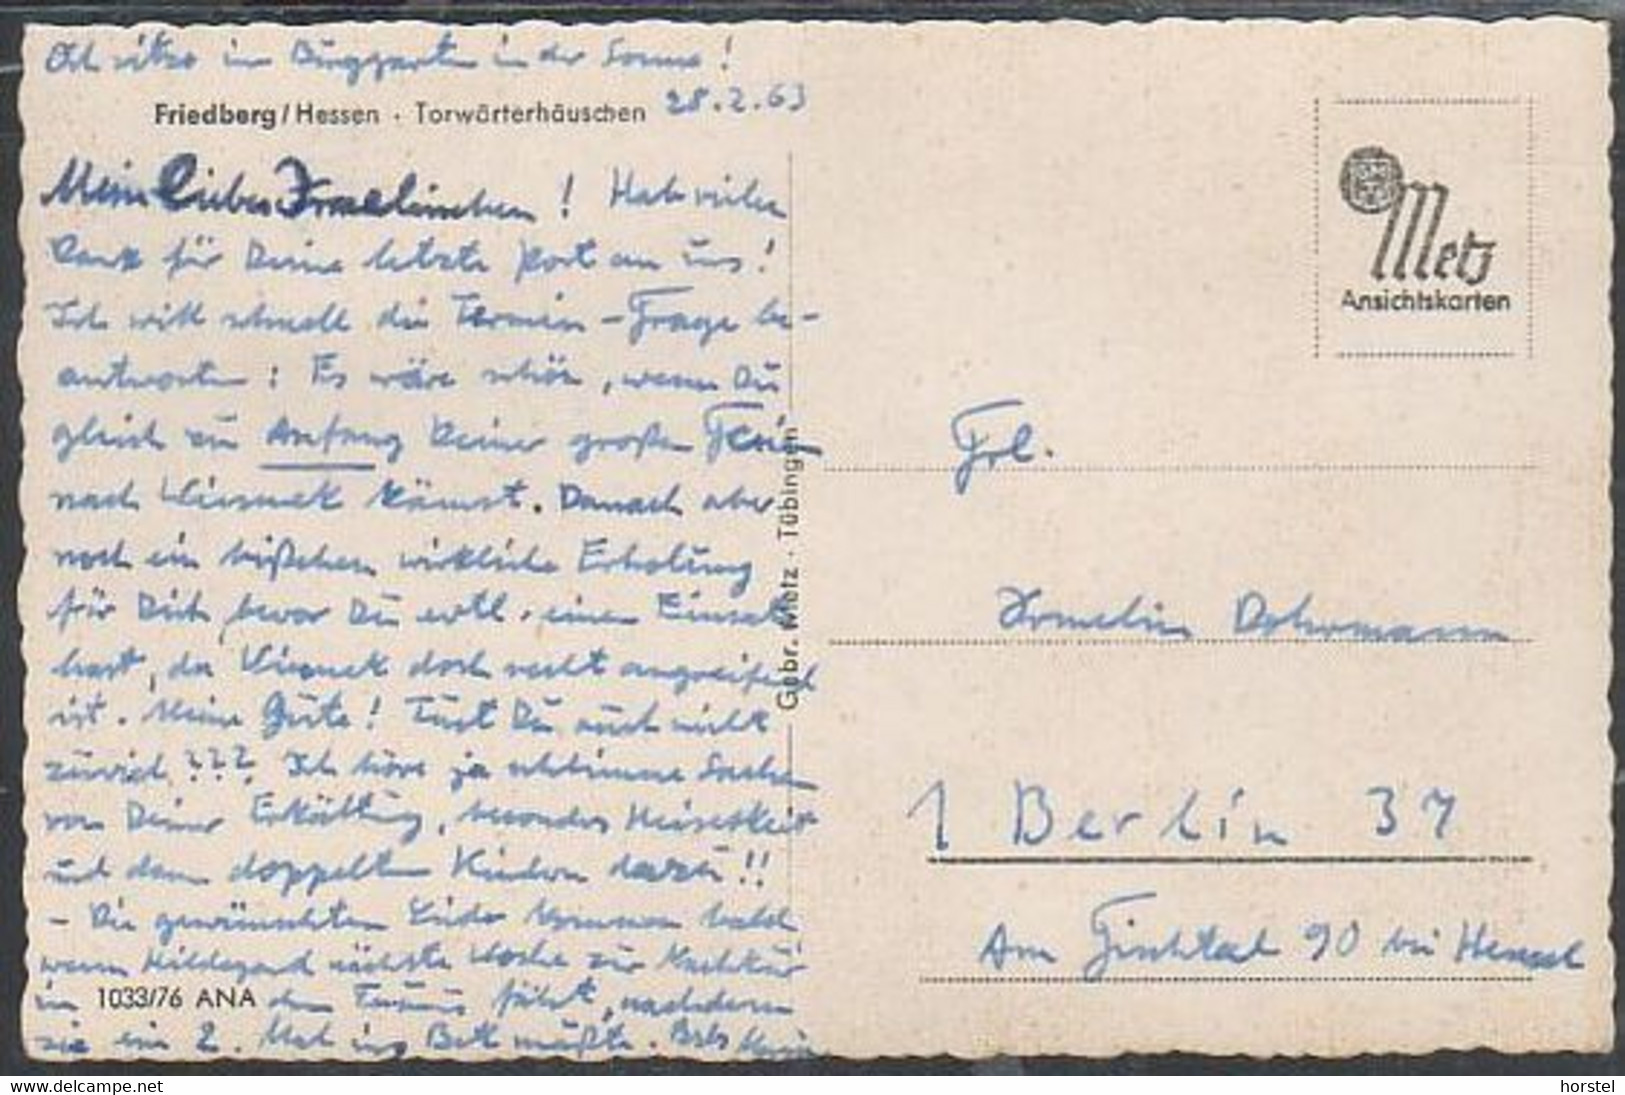 Ich sitze im Burggarten in der Sonne!
28.2.63
Friedberg/Hessen · Torwärterhäuschen
Mein liebes! Hab vielen
Dank für Deine letzte Post an uns!
Ich will schnell die Termin-Frage be-
antworten: Es wäre schön, wenn Du
gleich zu Anfang Deiner großen Ferien
nach kämst. Danach aber
noch ein bißchen wirkliche Erholung
für Dich, bevor Du evtl. einen Einsatz
hast, da doch recht angreifend
ist. Meine Gute! Tust Du auch nicht
zuviel??? Ich höre ja schlimme Sachen
von Deiner Erkältung, besonders Heiserkeit
und dem doppelten Kindern dazu!!
- Die gewünschten Lieder kommen bald
wenn Hildegard nächste Woche zur Nachkur
in den Taunus fährt, nachdem
sie ein 2. Mal ins Bett mußte.
1033/76 ANA
Gebr. Metz · Tübingen
Metz
Ansichtskarten
Frl.
Irmelin Dohrmann
1 Berlin 37
Am Fischtal 90 bei Hensel
delcampe.net
horstel